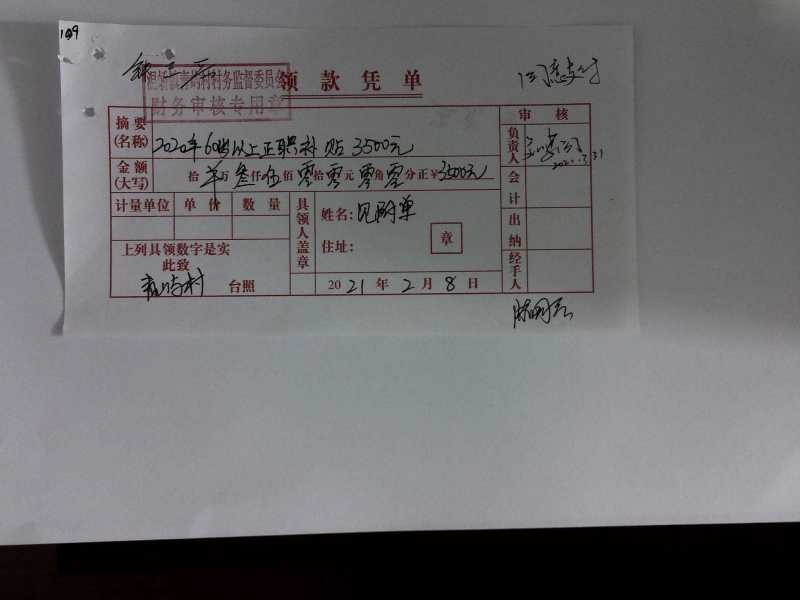 109
同意支付
村务监督委员会
财务审核专用章
领款凭单
审核
摘要
(名称)
2020年60岁以上正职补贴3500元
负责人
2021.3.31
金额
(大写)
拾 万 叁仟伍佰零拾零元零角零分正¥3500元
会计
计量单位 单价 数量
具领人盖章
姓名: 见附单
住址:
章
出纳
上列具领数字是实
此致
村 台照
2021年2月8日
经手人